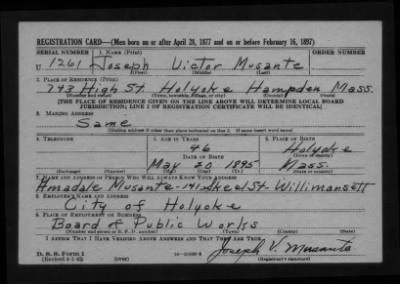 REGISTRATION CARD—(Men born on or after April 28, 1877 and on or before February 16, 1897)
SERIAL NUMBER 1. NAME (Print) ORDER NUMBER
U 1261 Joseph Victor Musante
(First) (Middle) (Last)
2. PLACE OF RESIDENCE (Print)
743 High St. Holyoke Hampden Mass.
(Number and street) (Town, township, village, or city) (County) (State)
[THE PLACE OF RESIDENCE GIVEN ON THE LINE ABOVE WILL DETERMINE LOCAL BOARD
JURISDICTION; LINE 2 OF REGISTRATION CERTIFICATE WILL BE IDENTICAL]
3. MAILING ADDRESS
Same
[Mailing address if other than place indicated on line 2. If same insert word same]
4. TELEPHONE 5. AGE IN YEARS 6. PLACE OF BIRTH
46 Holyoke
DATE OF BIRTH (Town or county)
May 20, 1895 Mass.
(Exchange) (Number) (Mo.) (Day) (Yr.) (State or country)
7. NAME AND ADDRESS OF PERSON WHO WILL ALWAYS KNOW YOUR ADDRESS
Musante-141 St-Willimansett
8. EMPLOYER'S NAME AND ADDRESS
City of Holyoke
9. PLACE OF EMPLOYMENT OR BUSINESS
Board of Public Works
(Number and street or R. F. D. number) (Town) (County) (State)
I AFFIRM THAT I HAVE VERIFIED ABOVE ANSWERS AND THAT THEY ARE TRUE.
D. S. S. Form 1 Joseph V. Musante
(Revised 4-1-42) (Registrant's signature)